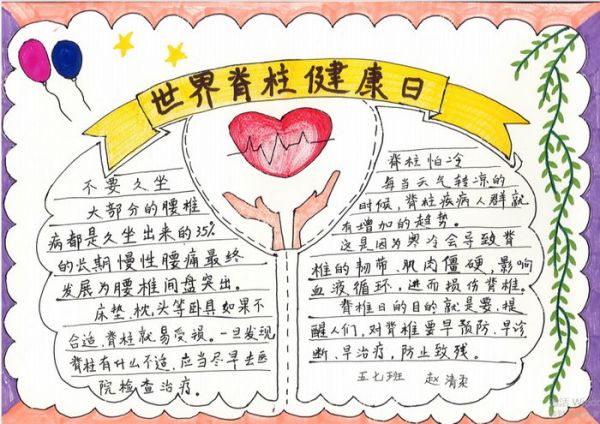 世界脊柱健康日
不要久坐
大部分的腰椎
病都是久坐出来的35%
的长期慢性腰痛最终
发展为腰椎间盘突出。
床垫,枕头等卧具如果不
合适,脊柱就易受损。一旦发现
脊柱有什么不适,应当尽早去医
院检查治疗。
脊柱怕冷
每当天气转凉的
时候,脊柱疾病人群就
有增加的趋势。
这是因为寒冷会导致脊
椎的韧带、肌肉僵硬,影响
血液循环,进而损伤脊椎。
脊椎日的目的就是要,提
醒人们,对脊椎要早预防、早诊
断、早治疗,防止致残。
五七班 赵清柔